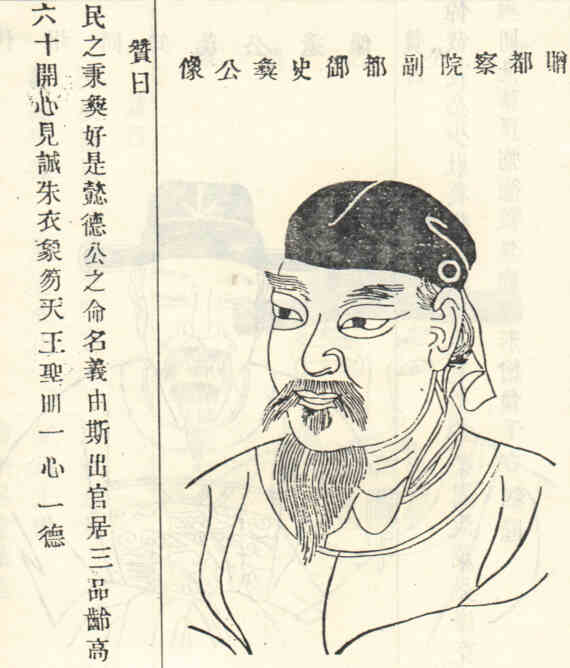 贈都察院副都御史彝公像
贊曰
民之秉彝好是懿德公之命名義由斯出官居三品齡高
六十開心見誠朱衣象笏天王聖明一心一德